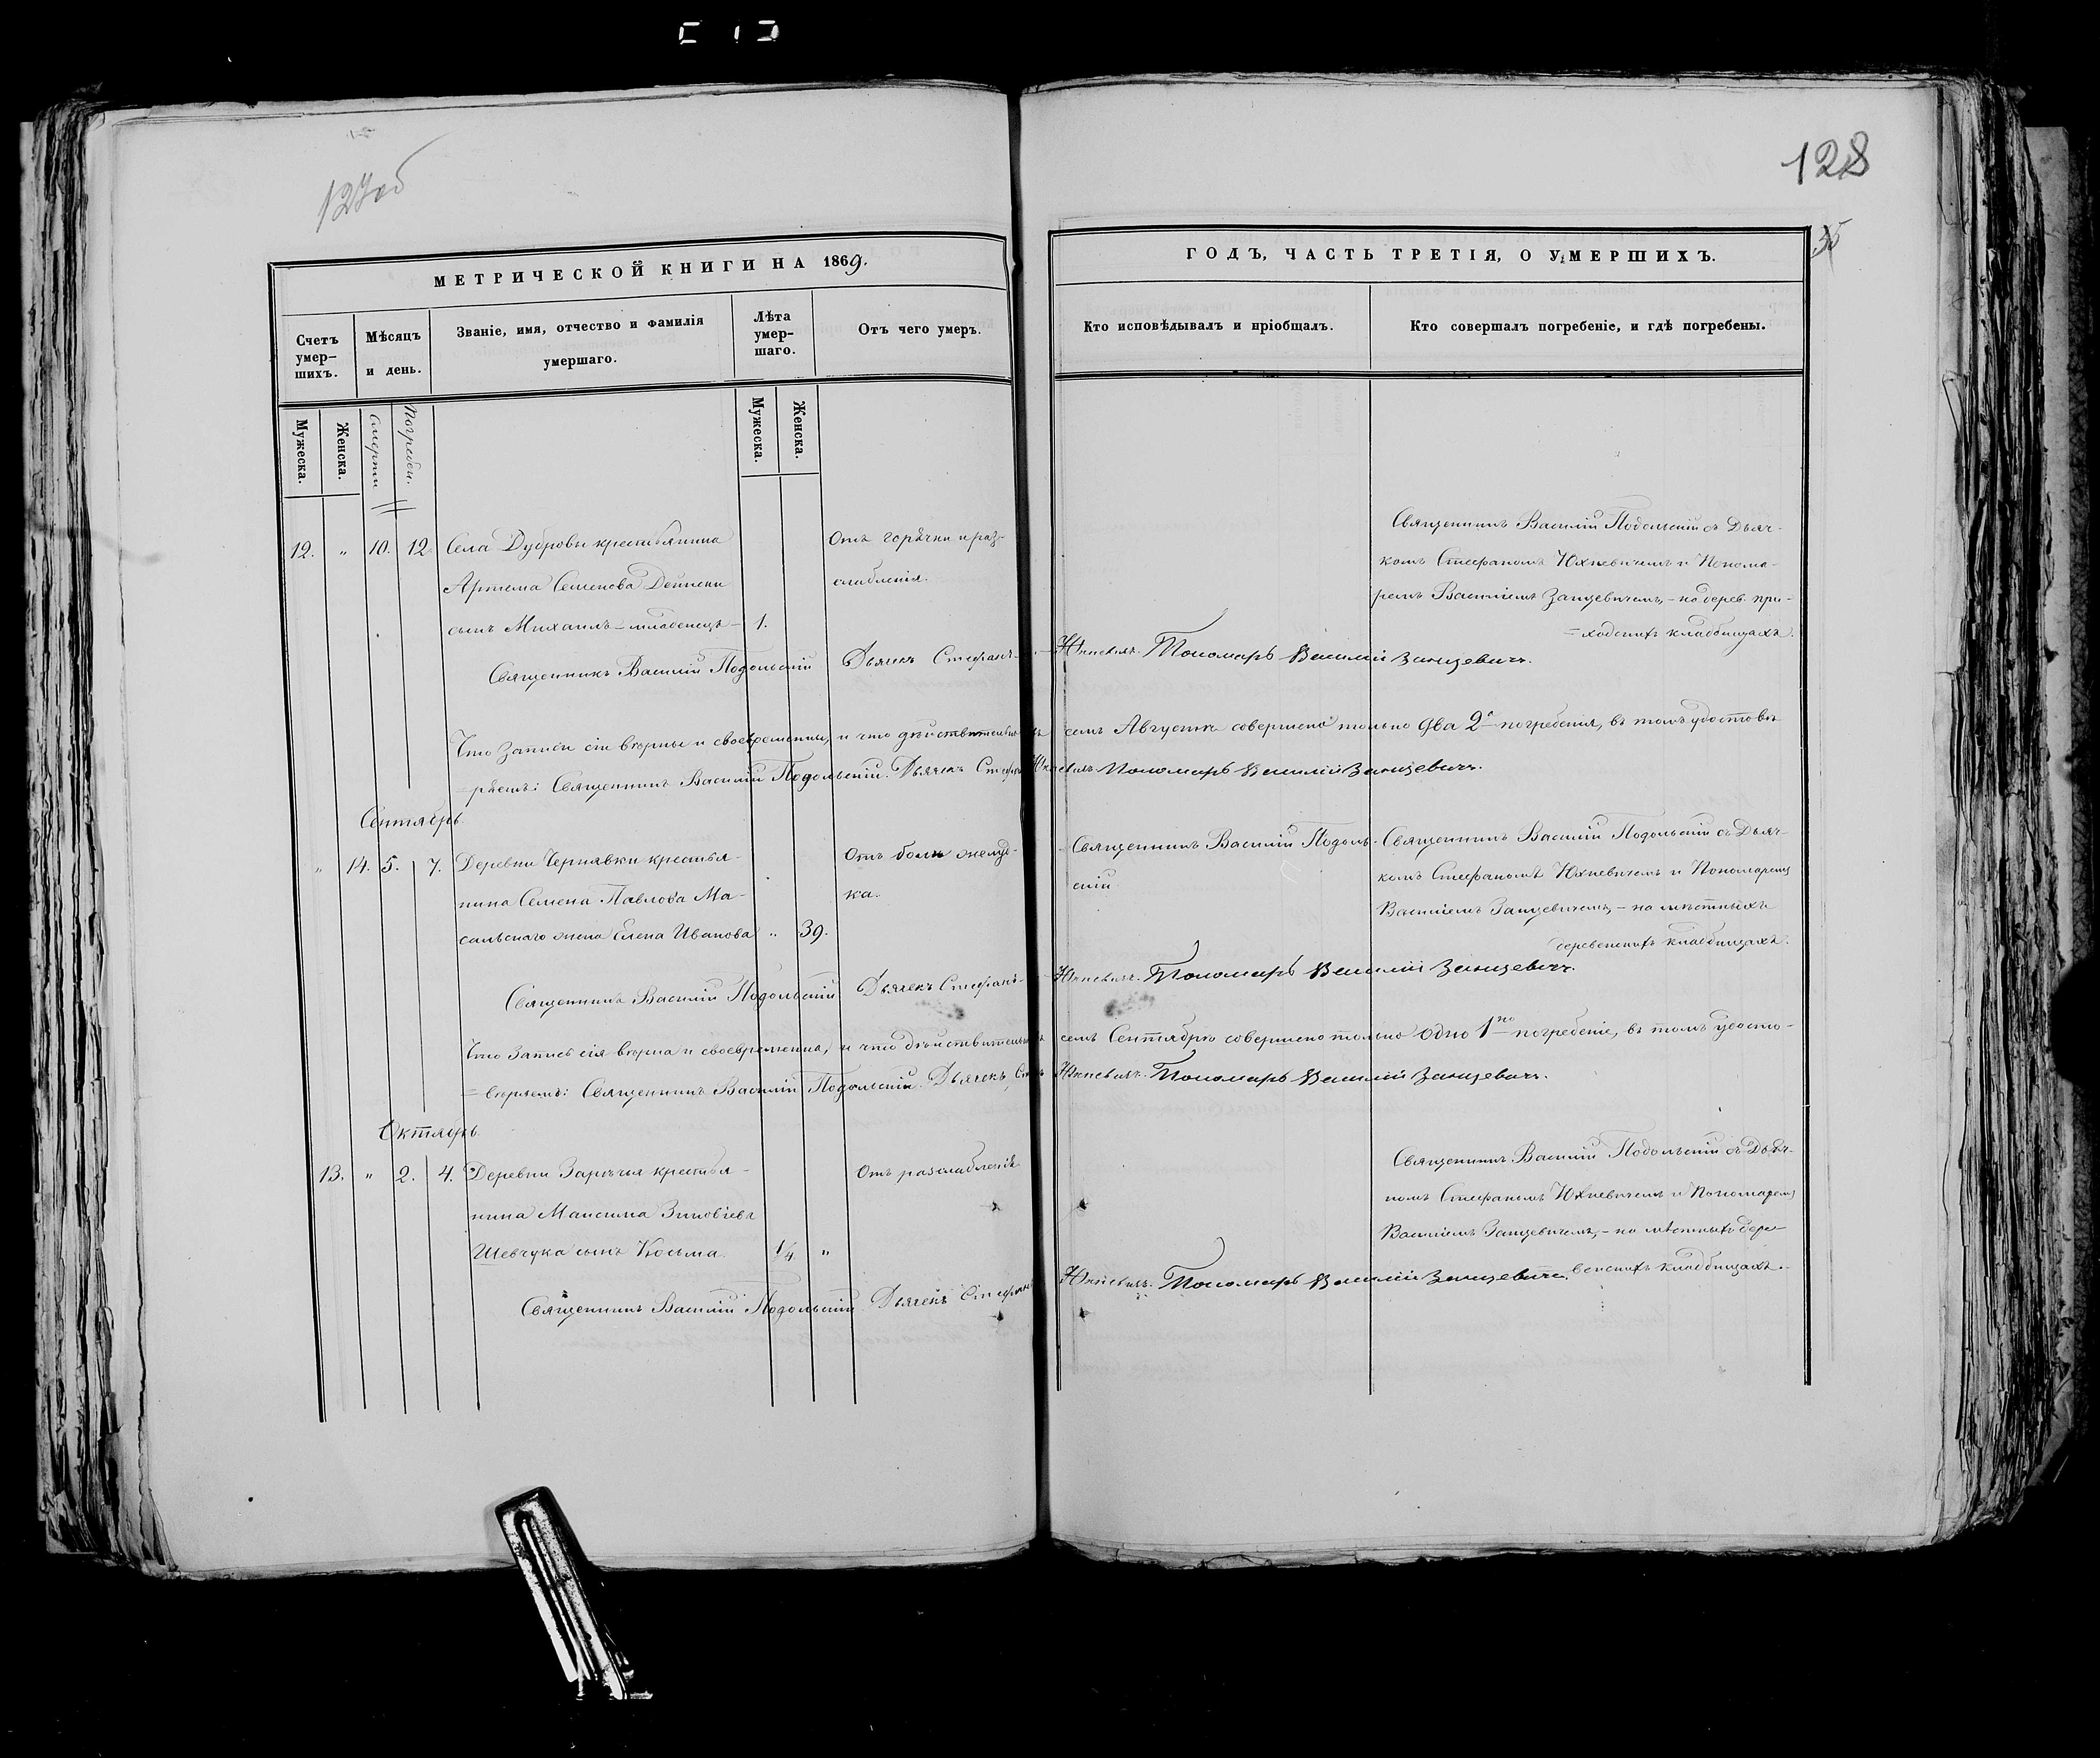 127об
128
35
МЕТРИЧЕСКОЙ КНИГИ НА 1869.
ГОДЪ, ЧАСТЬ ТРЕТІЯ, О УМЕРШИХЪ.
Счетъ умер-
шихъ.
Мѣсяцъ
и день.
Званіе, имя, отчество и фамилія
умершаго.
Лѣта
умер-
шаго.
Отъ чего умеръ.
Кто исповѣдывалъ и пріобщалъ.
Кто совершалъ погребеніе, и гдѣ погребены.
Мужеска.
Женска.
Смерти
Погребен.
Мужеска.
Женска.
12. " 10. 12 Села Дубровы крестьянина
Артема Семенова Дейнеки
сынъ Михаилъ – младенецъ – 1.
Отъ горячки и раз-
слабленія.
Священникъ Василій Подольскій съ Дьяч-
комъ Стефаномъ Юхневичемъ и Понома-
ремъ Василіемъ Занцевичемъ, – на дерев. при-
=ходскихъ кладбищахъ.
Священникъ Василій Подольскій Дьячекъ Стефанъ Юхневичъ. Пономарь Василій Занцевичъ.
Что записи сіи вѣрны и своевременны, и что дѣйствительно въ семъ Августѣ совершено только два 2 погребенія, въ томъ удостовѣ-
=ряемъ: Священникъ Василій Подольскій. Дьячекъ Стефанъ Юхневичъ. Пономарь Василій Занцевичъ.
Сентябрь.
" 14. 5. 7. Деревни Чернявки крестья-
нина Семена Павлова Ма-
сальскаго жена Елена Иванова " 39.
Отъ боли желуд-
ка.
Священникъ Василій Подоль-
скій
Священникъ Василій Подольскій съ Дьяч-
комъ Стефаномъ Юхневичемъ и Пономаремъ
Василіемъ Занцевичемъ, – на мѣстныхъ
деревенскихъ кладбищахъ.
Священникъ Василій Подольскій Дьячекъ Стефанъ Юхневичъ. Пономарь Василій Занцевичъ.
Что запись сія вѣрна и своевременна, и что дѣйствительно въ семъ Сентябрѣ совершено только одно 1но погребеніе, въ томъ удосто-
=вѣряемъ: Священникъ Василій Подольскій. Дьячекъ Стеф. Юхневичъ. Пономарь Василій Занцевичъ.
Октябрь.
13. " 2. 4. Деревни Зарѣчья крестья-
нина Максима Зиновіева
Шевчука сынъ Косьма. 1/4. "
Отъ разслабленія
Священникъ Василій Подольскій съ Дьяч-
комъ Стефаномъ Юхневичемъ и Пономаремъ
Василіемъ Занцевичемъ, – на мѣстныхъ дере-
венскихъ кладбищахъ.
Священникъ Василій Подольскій Дьячекъ Стефанъ Юхневичъ. Пономарь Василій Занцевичъ.